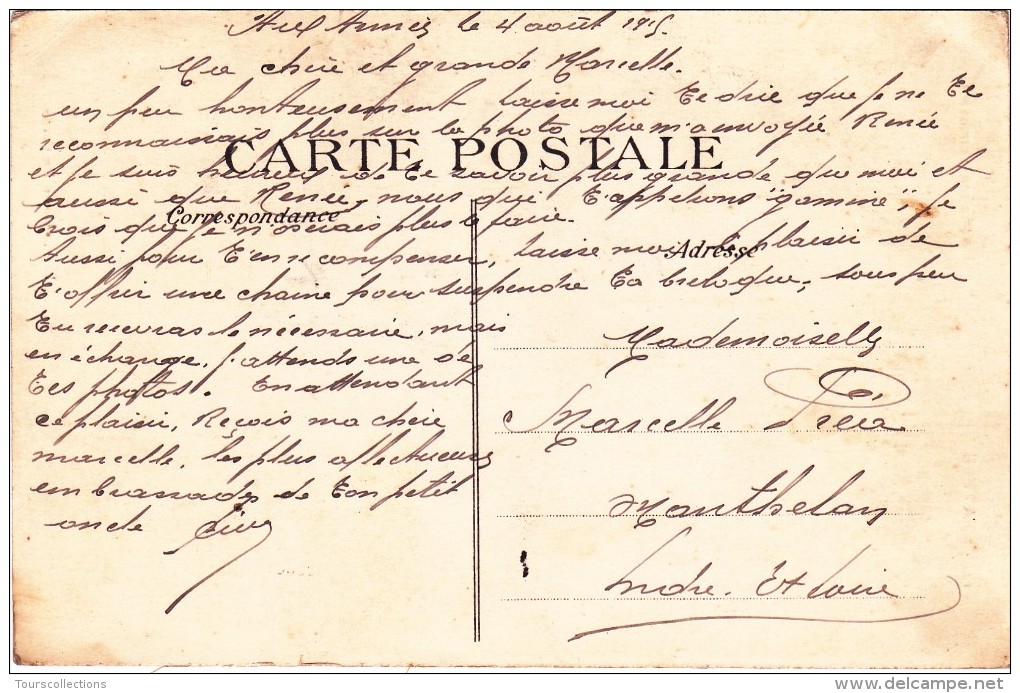 Aux Armées le 4 août 1915.
Ma chère et grande Marcelle.
un peu honteusement laisse moi te dire que je ne te
reconnaissais plus sur la photo que m'a envoyée Renée
CARTE POSTALE
et je suis heureux de te savoir plus grande que moi et
aussi que Renée, nous qui t'appelions "gamine", je
Correspondance
crois que je n'oserais plus le faire.
Aussi pour t'en recompenser, laisse moi le plaisir de
Adresse
t'offrir une chaine pour suspendre ta breloque, sous peu
tu recevras le nécessaire, mais
en échange, j'attends une de
tes photos. En attendant
ce plaisir, Reçois ma chère
marcelle, les plus affectueuses
embrassades de ton petit
oncle
Mademoiselle
Marcelle
Manthelan
Indre. Et Loire
Tourscollections
www.delcampe.net